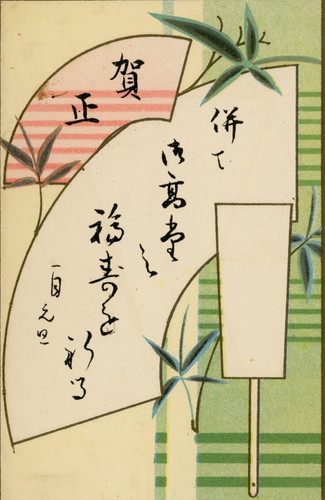 賀
正
併て
御高堂之
福寿を
祈る
一月元旦